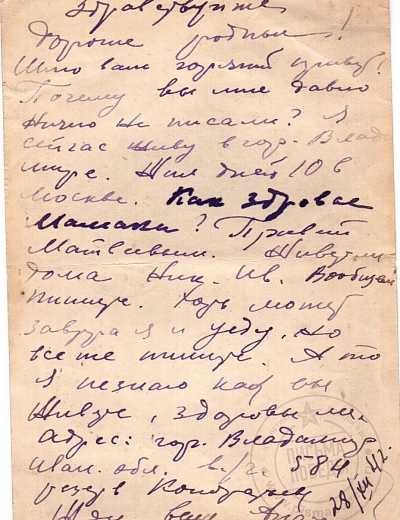 Здравствуйте
дорогие родные!
Шлю вам горячий привет!
Почему вы мне давно
ничего не писали? Я
сейчас живу в гор. Влади
мире. Жил дней 10 в
Москве. Как здоровье
Мамаши? Привет
Матвеевым. Живут ли
дома Ник. Ив. Вообщем
пишите. Хоть может
завтра я и уеду, но
все же пишите. А то
я незнаю как вы
живете, здоровы ли.
Адрес: гор. Владимир
Иван. обл. в/ч 584
резерв
Жду ваш
28/XII 42.
ПИСЬМА
ПОБЕДЫ